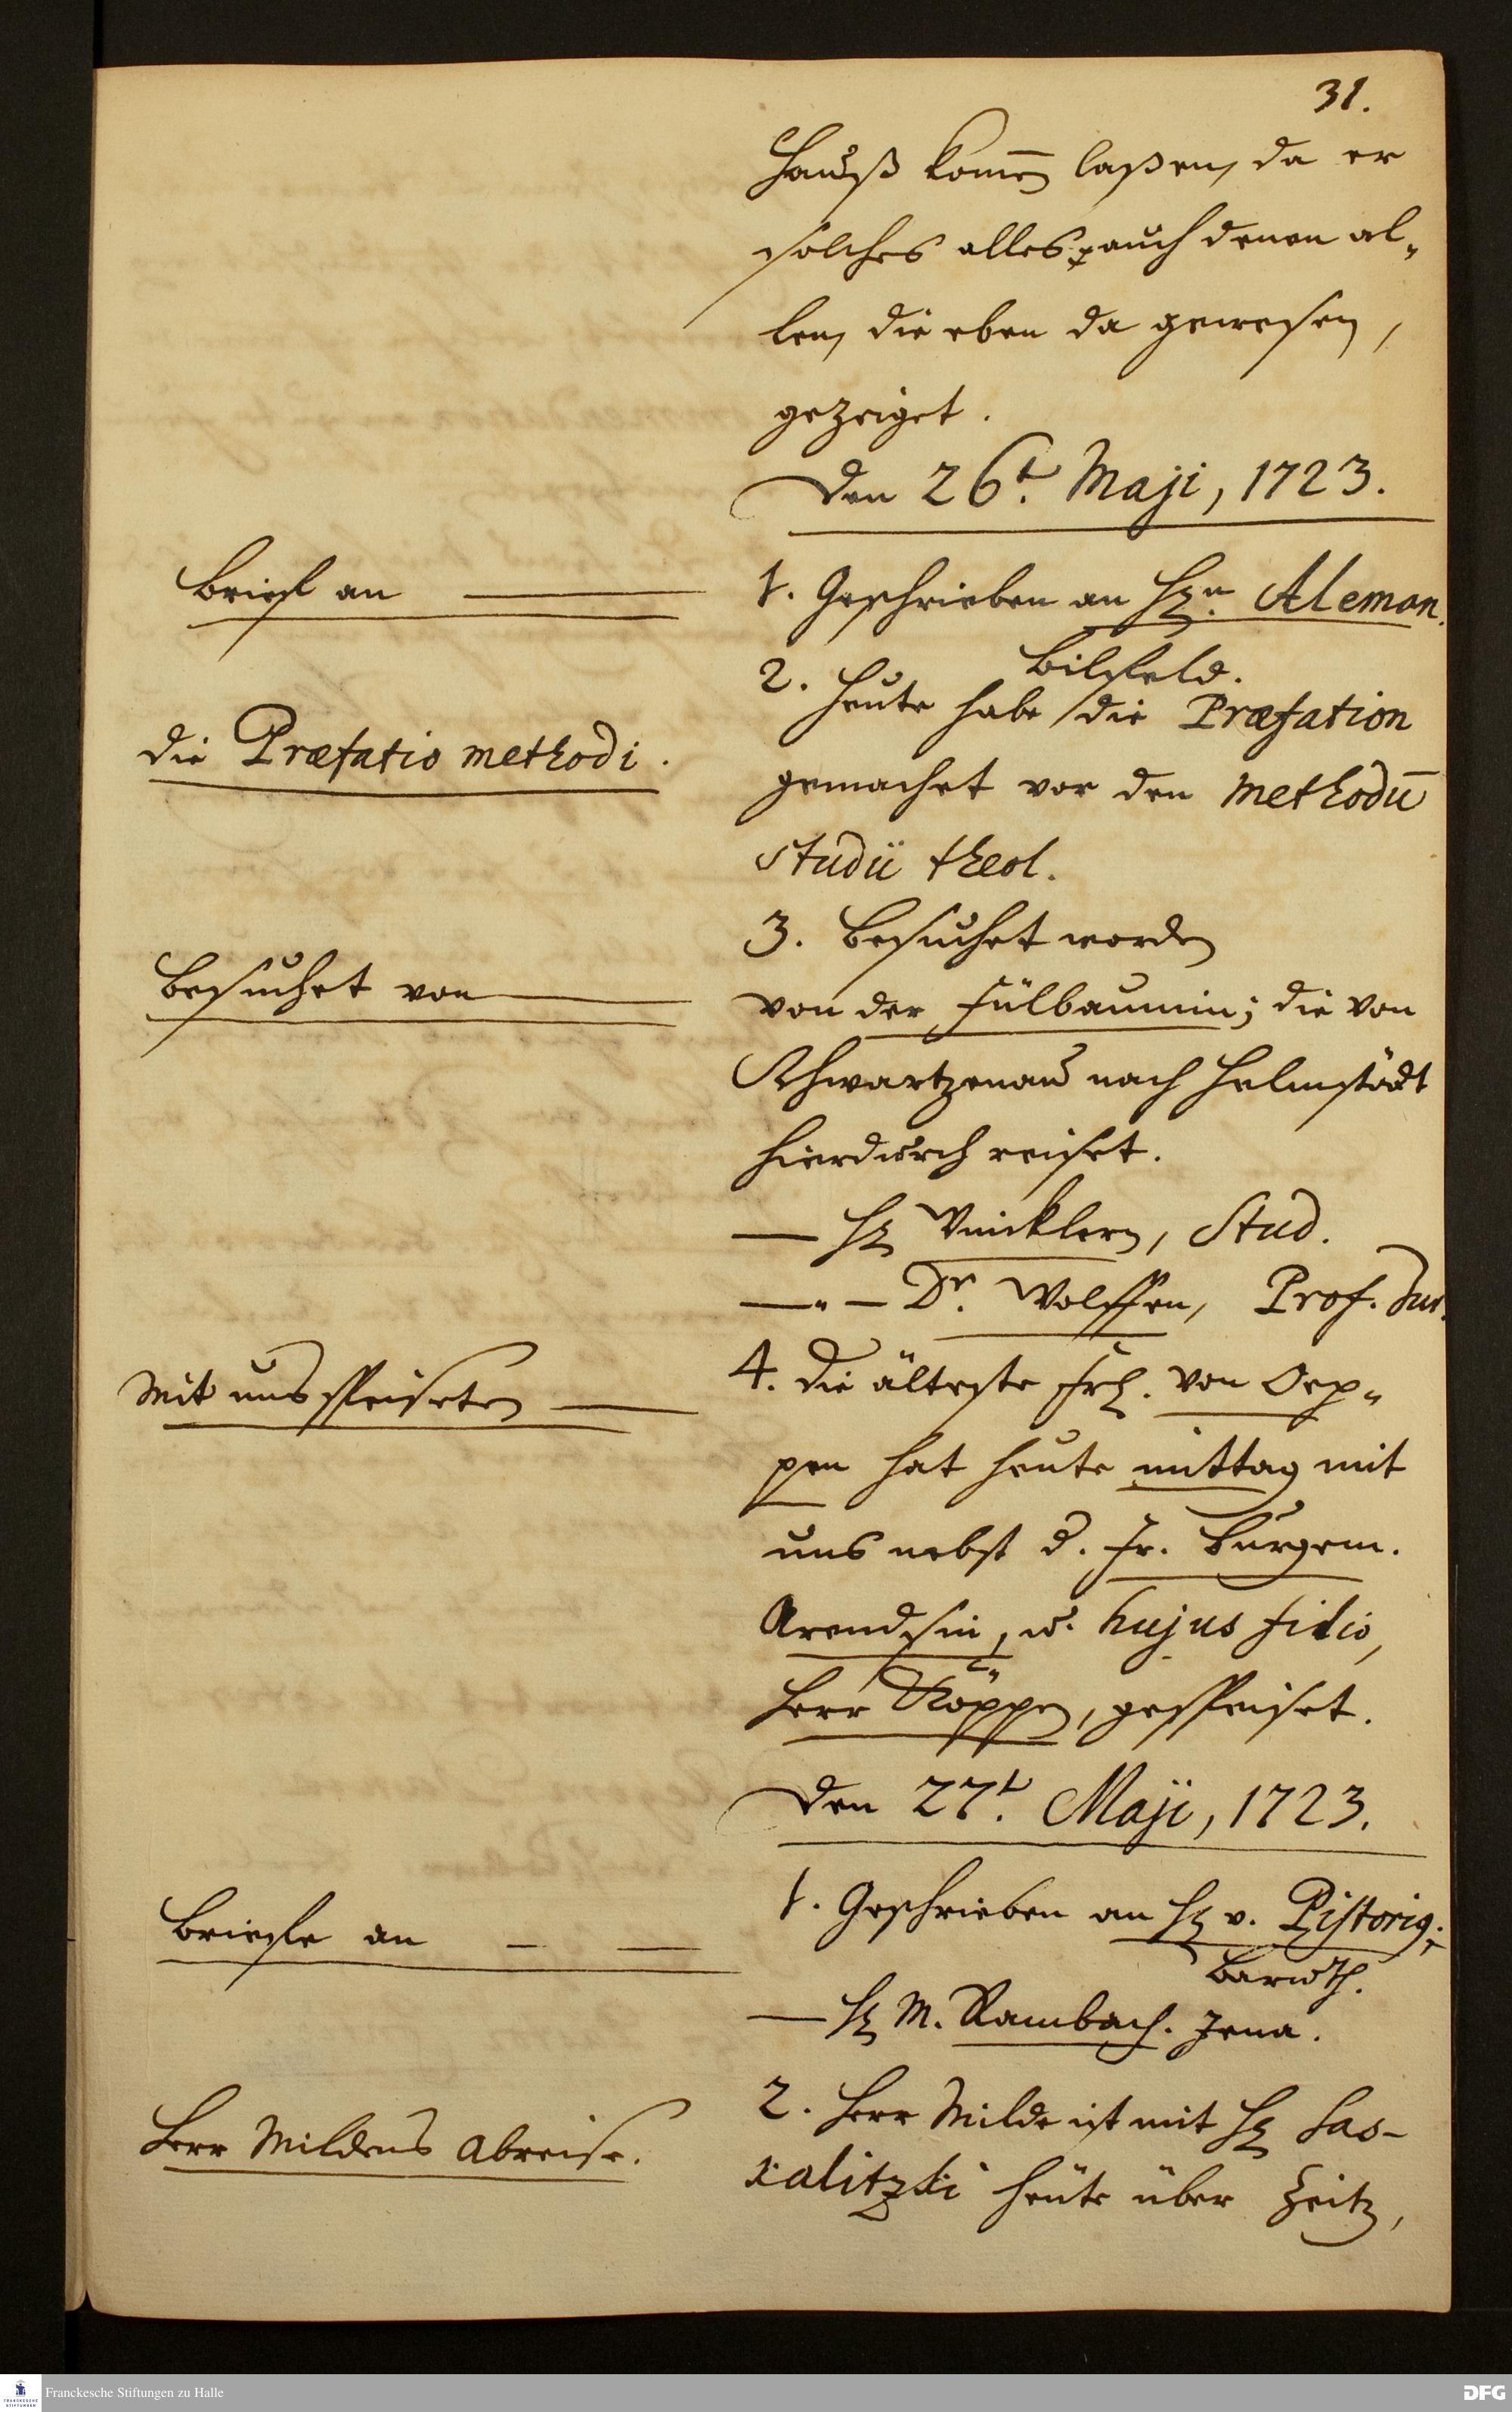 31.
Hauß kom̄en laßen, da er
solches alles, auch denen al„
len, die eben da gewesen,
gezeiget.
Den 26t. Maji, 1723.
Brief an
1. Geschrieben an Hrn. Aleman.
Bilefeld.
2. Heute habe die Præfation
die Præfatio methodi.
gemachet vor den methodū
studii theol.
3. Besuchet worden
Besuchet von
von der Fülbaumin; die von
Schwartzenau nach Helmstädt
hierdurch reiset.
— H. Wincklern, Stud.
—„— Dr. Wolffen, Prof. Jur.
Mit uns speiseten
4. Die älteste Frl. von Oep„
pen hat heute mittag mit
uns nebst d. Fr. Burgem.
Arendsin, u. hujus filio,
Herr Köppen, gespeiset.
Den 27t. Maji, 1723.
Briefe an
1. Geschrieben an H. v. Pistorig.
Baruth.
— H. M. Rambach. Jena.
Herr Mildens Abreise.
2. Herr Milde ist mit H. Sas-
kalitzki heute über Zeitz,
Franckesche Stiftungen zu Halle
DFG